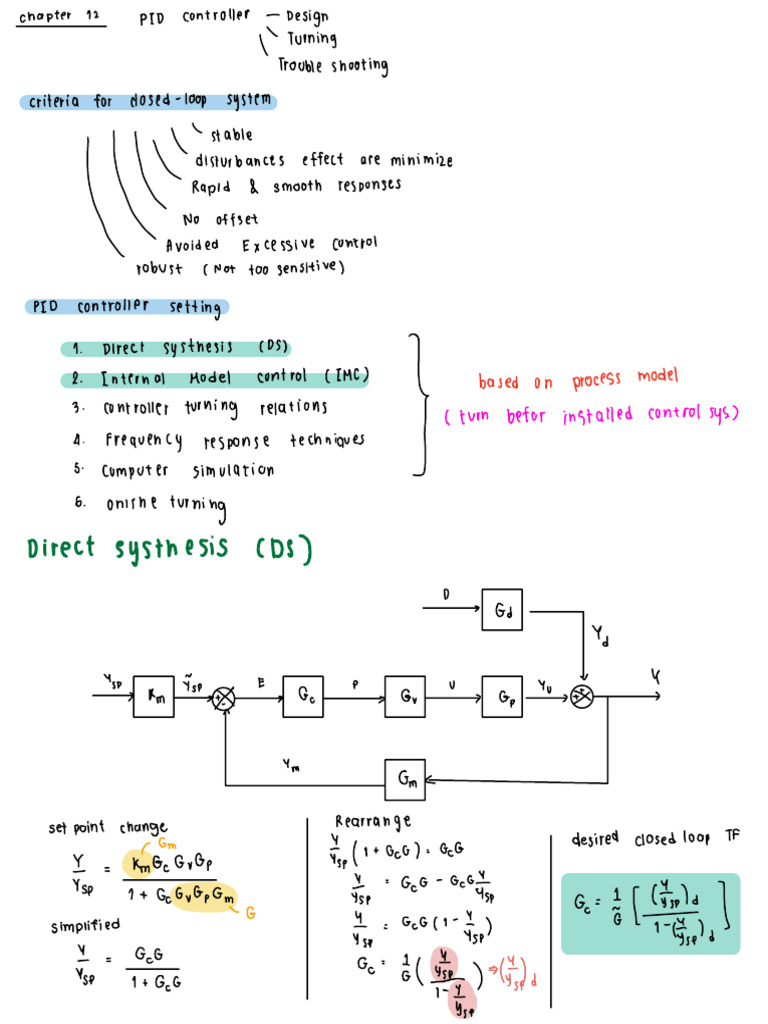 chapter 12 PID controller — Design
Turning
Trouble shooting
criteria for closed-loop system
stable
disturbances effect are minimize
Rapid & smooth responses
No offset
Avoided Excessive control
robust (Not too sensitive)
PID controller setting
1. Direct systhesis (DS)
2. Internal Model control (IMC)
3. controller turning relations
4. Frequency response techniques
5. Computer simulation
6. online turning
based on process model
(turn befor installed control sys)
Direct systhesis (DS)
D
G_d
Y_d
Y_sp K_m Ỹ_sp + - E G_c P G_v U G_p Y_u + + Y
Y_m G_m
set point change
G_m
Y/Y_sp = K_m G_c G_v G_p / 1 + G_c G_v G_p G_m
G
simplified
Y/Y_sp = G_c G / 1 + G_c G
Rearrange
Y/Y_sp (1 + G_c G) = G_c G
Y/Y_sp = G_c G - G_c G Y/Y_sp
Y/Y_sp = G_c G (1 - Y/Y_sp)
G_c = 1/G ( Y/Y_sp / 1 - Y/Y_sp ) ⇒ (Y/Y_sp)_d
desired closed loop TF
G_c = 1/G̃ [ (Y/Y_sp)_d / 1 - (Y/Y_sp)_d ]